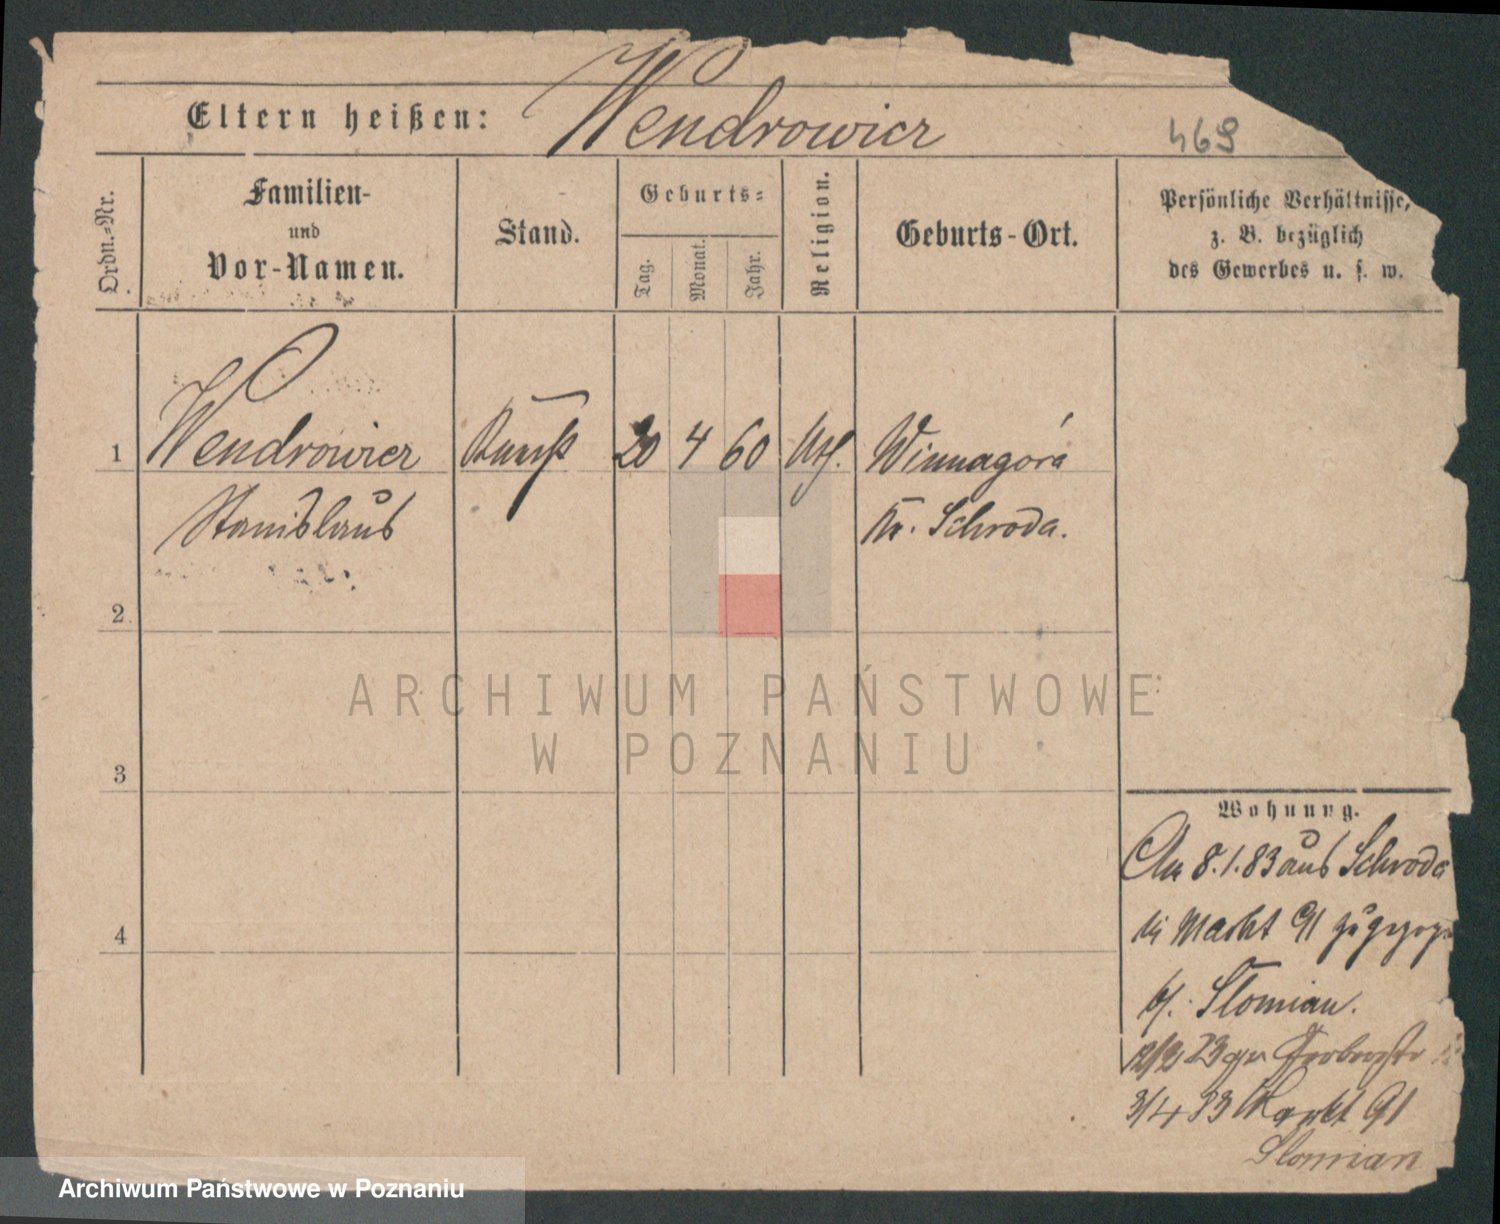 Eltern heißen: Wendrowicz
469
Ordn.-Nr.
Familien-
und
Vor-Namen.
Stand.
Geburts-
Tag.
Monat.
Jahr.
Religion.
Geburts-Ort.
Persönliche Verhältnisse,
z. B. bezüglich
des Gewerbes u. s. w.
1 Wendrowicz 20 4 60 Winnagóra
Stanislaus Kr. Schroda.
2
3
4
ARCHIWUM PAŃSTWOWE
W POZNANIU
Wohnung.
An 8.1.83 aus Schroda
Markt 91
Slomian.
3/4 83 Markt 91
Slomian
Archiwum Państwowe w Poznaniu